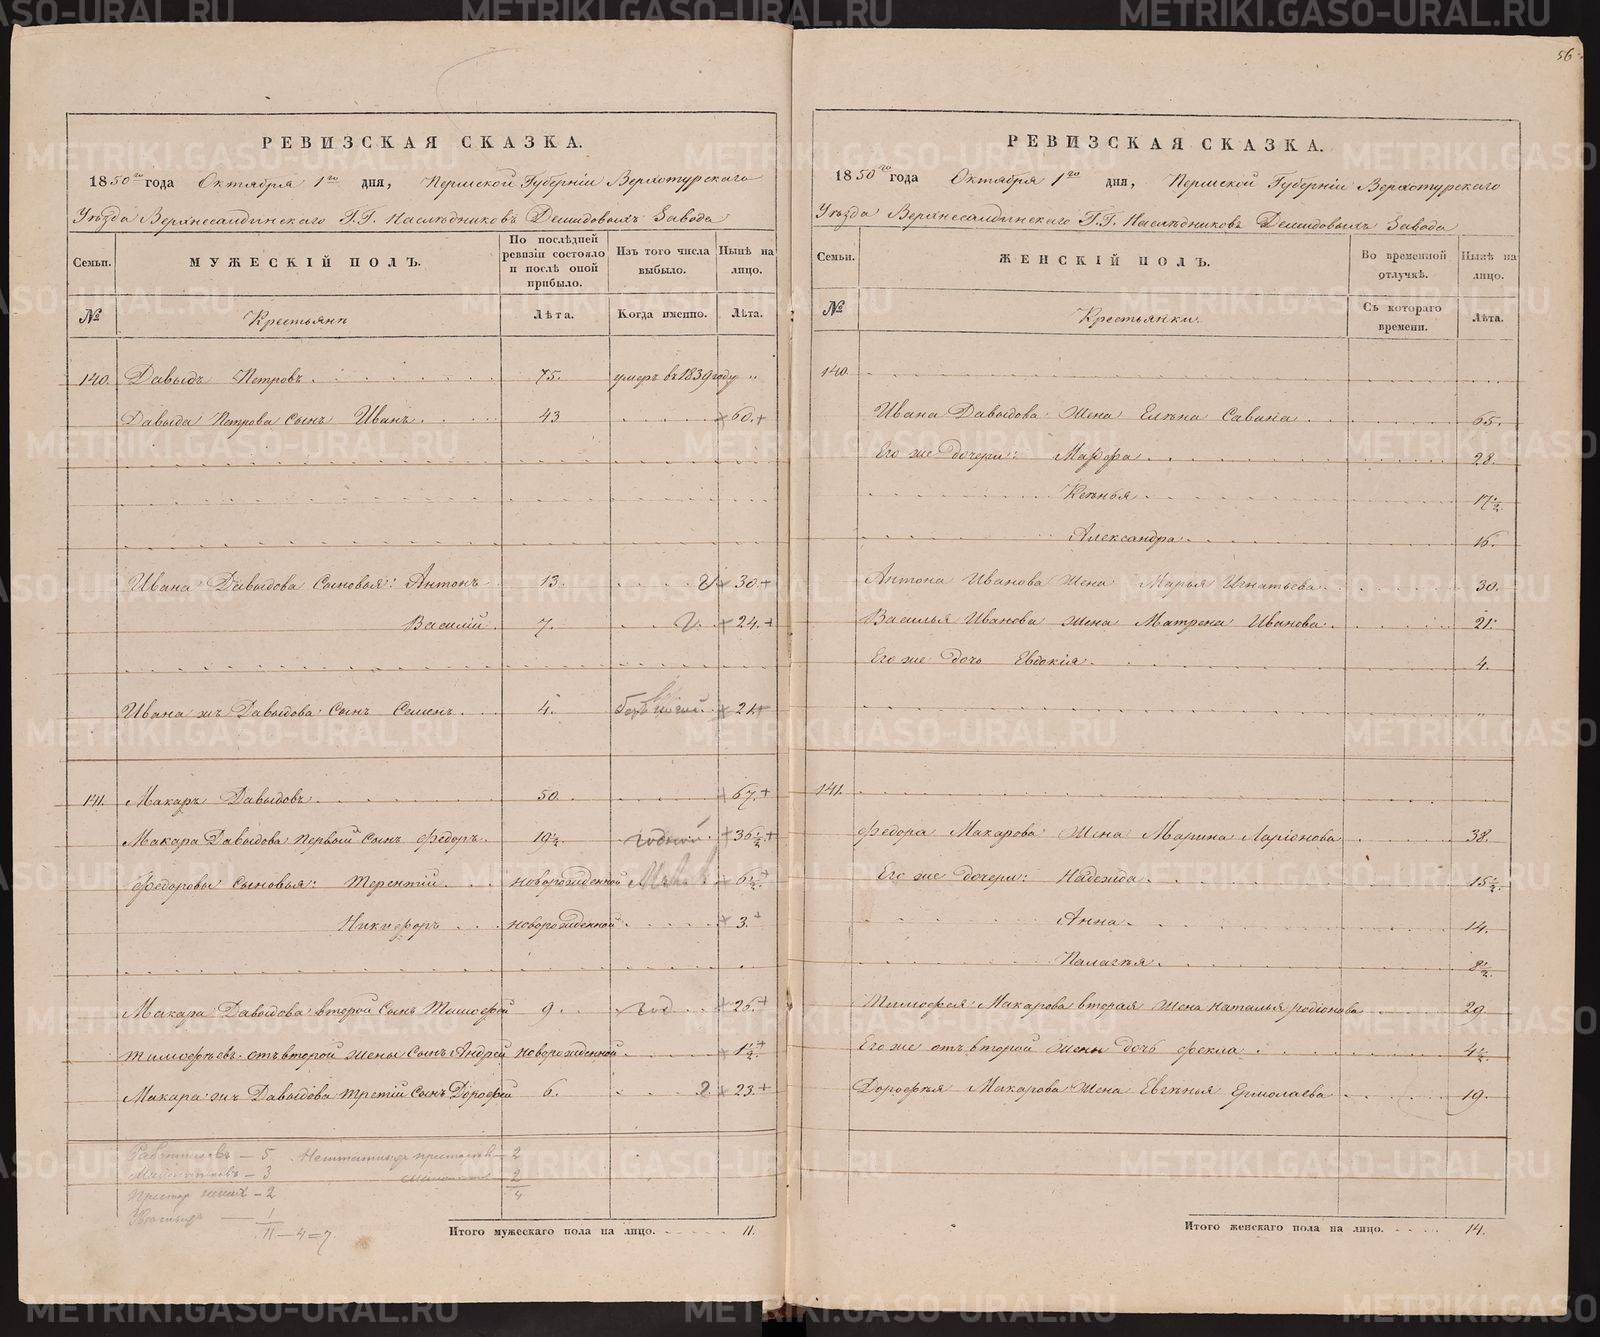 56
РЕВИЗСКАЯ СКАЗКА.
1850го года Октября 1го дня, Пермской Губерніи Верхотурскаго
Уѣзда Верхнесалдинскаго Г.Г. Наслѣдниковъ Демидовыхъ Завода
Семьи. МУЖЕСКІЙ ПОЛЪ. По послѣдней ревизіи состояло и послѣ оной прибыло. Изъ того числа выбыло. Нынѣ на лицо.
№ Крестьянъ Лѣта. Когда именно. Лѣта.
140. Давыдъ Петровъ 75. умеръ въ 1839 году "
Давыда Петрова сынъ Иванъ 43 60.
Ивана Давыдова сыновья: Антонъ 13. 30.
Василій 7. 24.
Ивана жъ Давыдова сынъ Семенъ 4. 21
141. Макаръ Давыдовъ 50 67.
Макара Давыдова первый сынъ Федоръ 19½ годной 36½
Федоровы сыновья: Терентій новорожденной 6½
Никифоръ новорожденной 3.
Макара Давыдова второй сынъ Тимофей 9. год 26
Тимофѣевъ отъ второй жены сынъ Андрей новорожденной 1½
Макара жъ Давыдова третій сынъ Дорофей 6. 23
Работниковъ – 5 престар – 2
– 3 – 2
Престар – 2 4
1
11 – 4 = 7.
Итого мужескаго пола на лицо. 11.
РЕВИЗСКАЯ СКАЗКА.
1850го года Октября 1го дня, Пермской Губерніи Верхотурскаго
Уѣзда Верхнесалдинскаго Г.Г. Наслѣдниковъ Демидовыхъ Завода
Семьи. ЖЕНСКІЙ ПОЛЪ. Во временной отлучкѣ. Нынѣ на лицо.
№ Крестьянки. Съ котораго времени. Лѣта.
140.
Ивана Давыдова жена Елѣна Савина 65.
Его же дочери: Марфа 28.
Ксѣнья 17½
Александра 16.
Антона Иванова жена Марья Игнатьева 30.
Василья Иванова жена Матрена Иванова 21.
Его же дочь Евдокія 4.
141.
Федора Макарова жена Марина Ларіонова 38.
Его же дочери: Надежда 15½
Анна 14.
Палагѣя 8½
Тимофея Макарова вторая жена Наталья Родіонова 29.
Его же отъ второй жены дочь Фекла 4½
Дорофѣя Макарова жена Евгѣнья Ермолаева 19.
Итого женскаго пола на лицо. 14.
METRIKI.GASO-URAL.RU